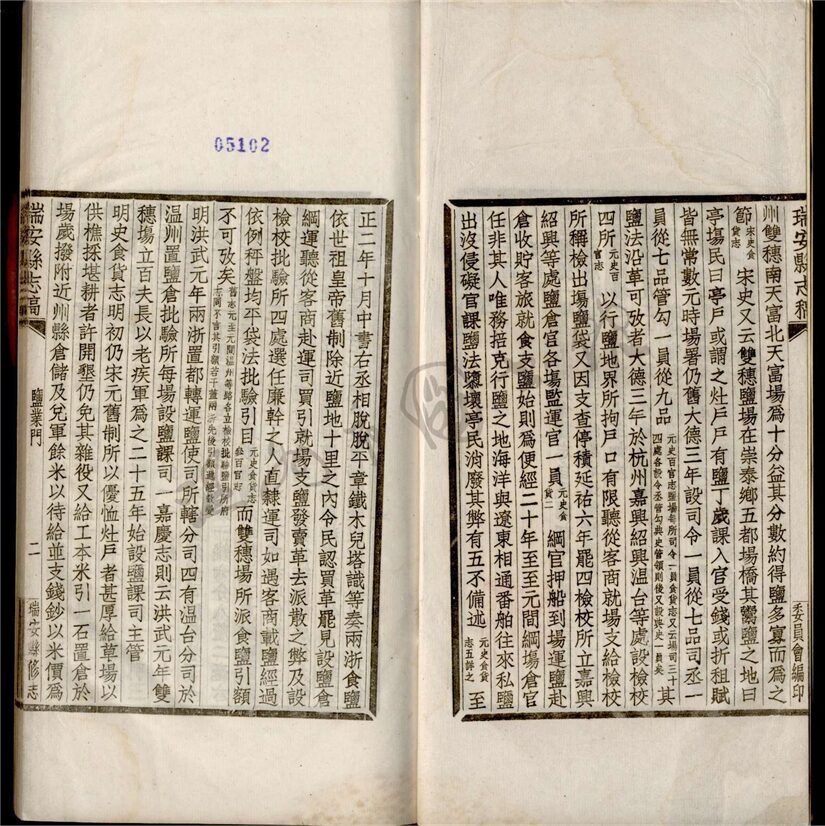 瑞安縣志稿
委員會編印
州雙穗南天富北天富場爲十分益其分數約得鹽多寡而爲之
節宋史食貨志 宋史又云雙穗鹽場在崇泰鄉五都場橋其鬻鹽之地曰
亭塲民曰亭戶或謂之灶戶戶有鹽丁歲課入官受錢或折租賦
皆無常數元時場署仍舊大德三年設司令一員從七品司丞一
員從七品管勾一員從九品元史百官志鹽場每所司令一員食貨志又云場司三十四處各設令丞管勾與史管領則後又設典史一員矣 其
鹽法沿革可攷者大德三年於杭州嘉興紹興溫台等處設檢校
四所元史百官志 以行鹽地界所拘戶口有限聽從客商就場支給檢校
所稱檢出場鹽袋又因支查停積延祐六年罷四檢校所立嘉興
紹興等處鹽倉官各場監運官一員元史食貨二 綱官押船到場運鹽赴
倉收貯客旅就食支鹽始則爲便經二十年至至元間綱場倉官
任非其人唯務掊克行鹽之地海洋與遼東相通番舶往來私鹽
出沒侵礙官課鹽法隳壞亭民消廢其弊有五不備述元史食貨志五詳之 至
正二年十月中書右丞相脫脫平章鐵木兒塔識等奏兩浙食鹽
依世祖皇帝舊制除近鹽地十里之內令民認買革罷見設鹽倉
綱運聽從客商赴運司買引就場支鹽發賣革去派散之弊及設
檢校批驗所四處選任廉幹之人直隸運司如遇客商載鹽經過
依例秤盤均平袋法批驗引目元史食貨志叁百官志 而雙穗場所派食鹽引額
不可攷矣
明洪武元年兩浙置都轉運鹽使司所轄分司四有溫台分司於
溫州置鹽倉批驗所每場設鹽課司一嘉慶志則云洪武元年雙
穗塲立百夫長以老疾軍爲之二十五年始設鹽課司主管
明史食貨志明初仍宋元舊制所以優恤灶戶者甚厚給草場以
供樵採堪耕者許開墾仍免其雜役又給工本米引一石置倉於
場歲撥附近州縣倉儲及兌軍餘米以待給並支錢鈔以米價爲
瑞安縣志稿
鹽業門
二
瑞安縣修志
05102